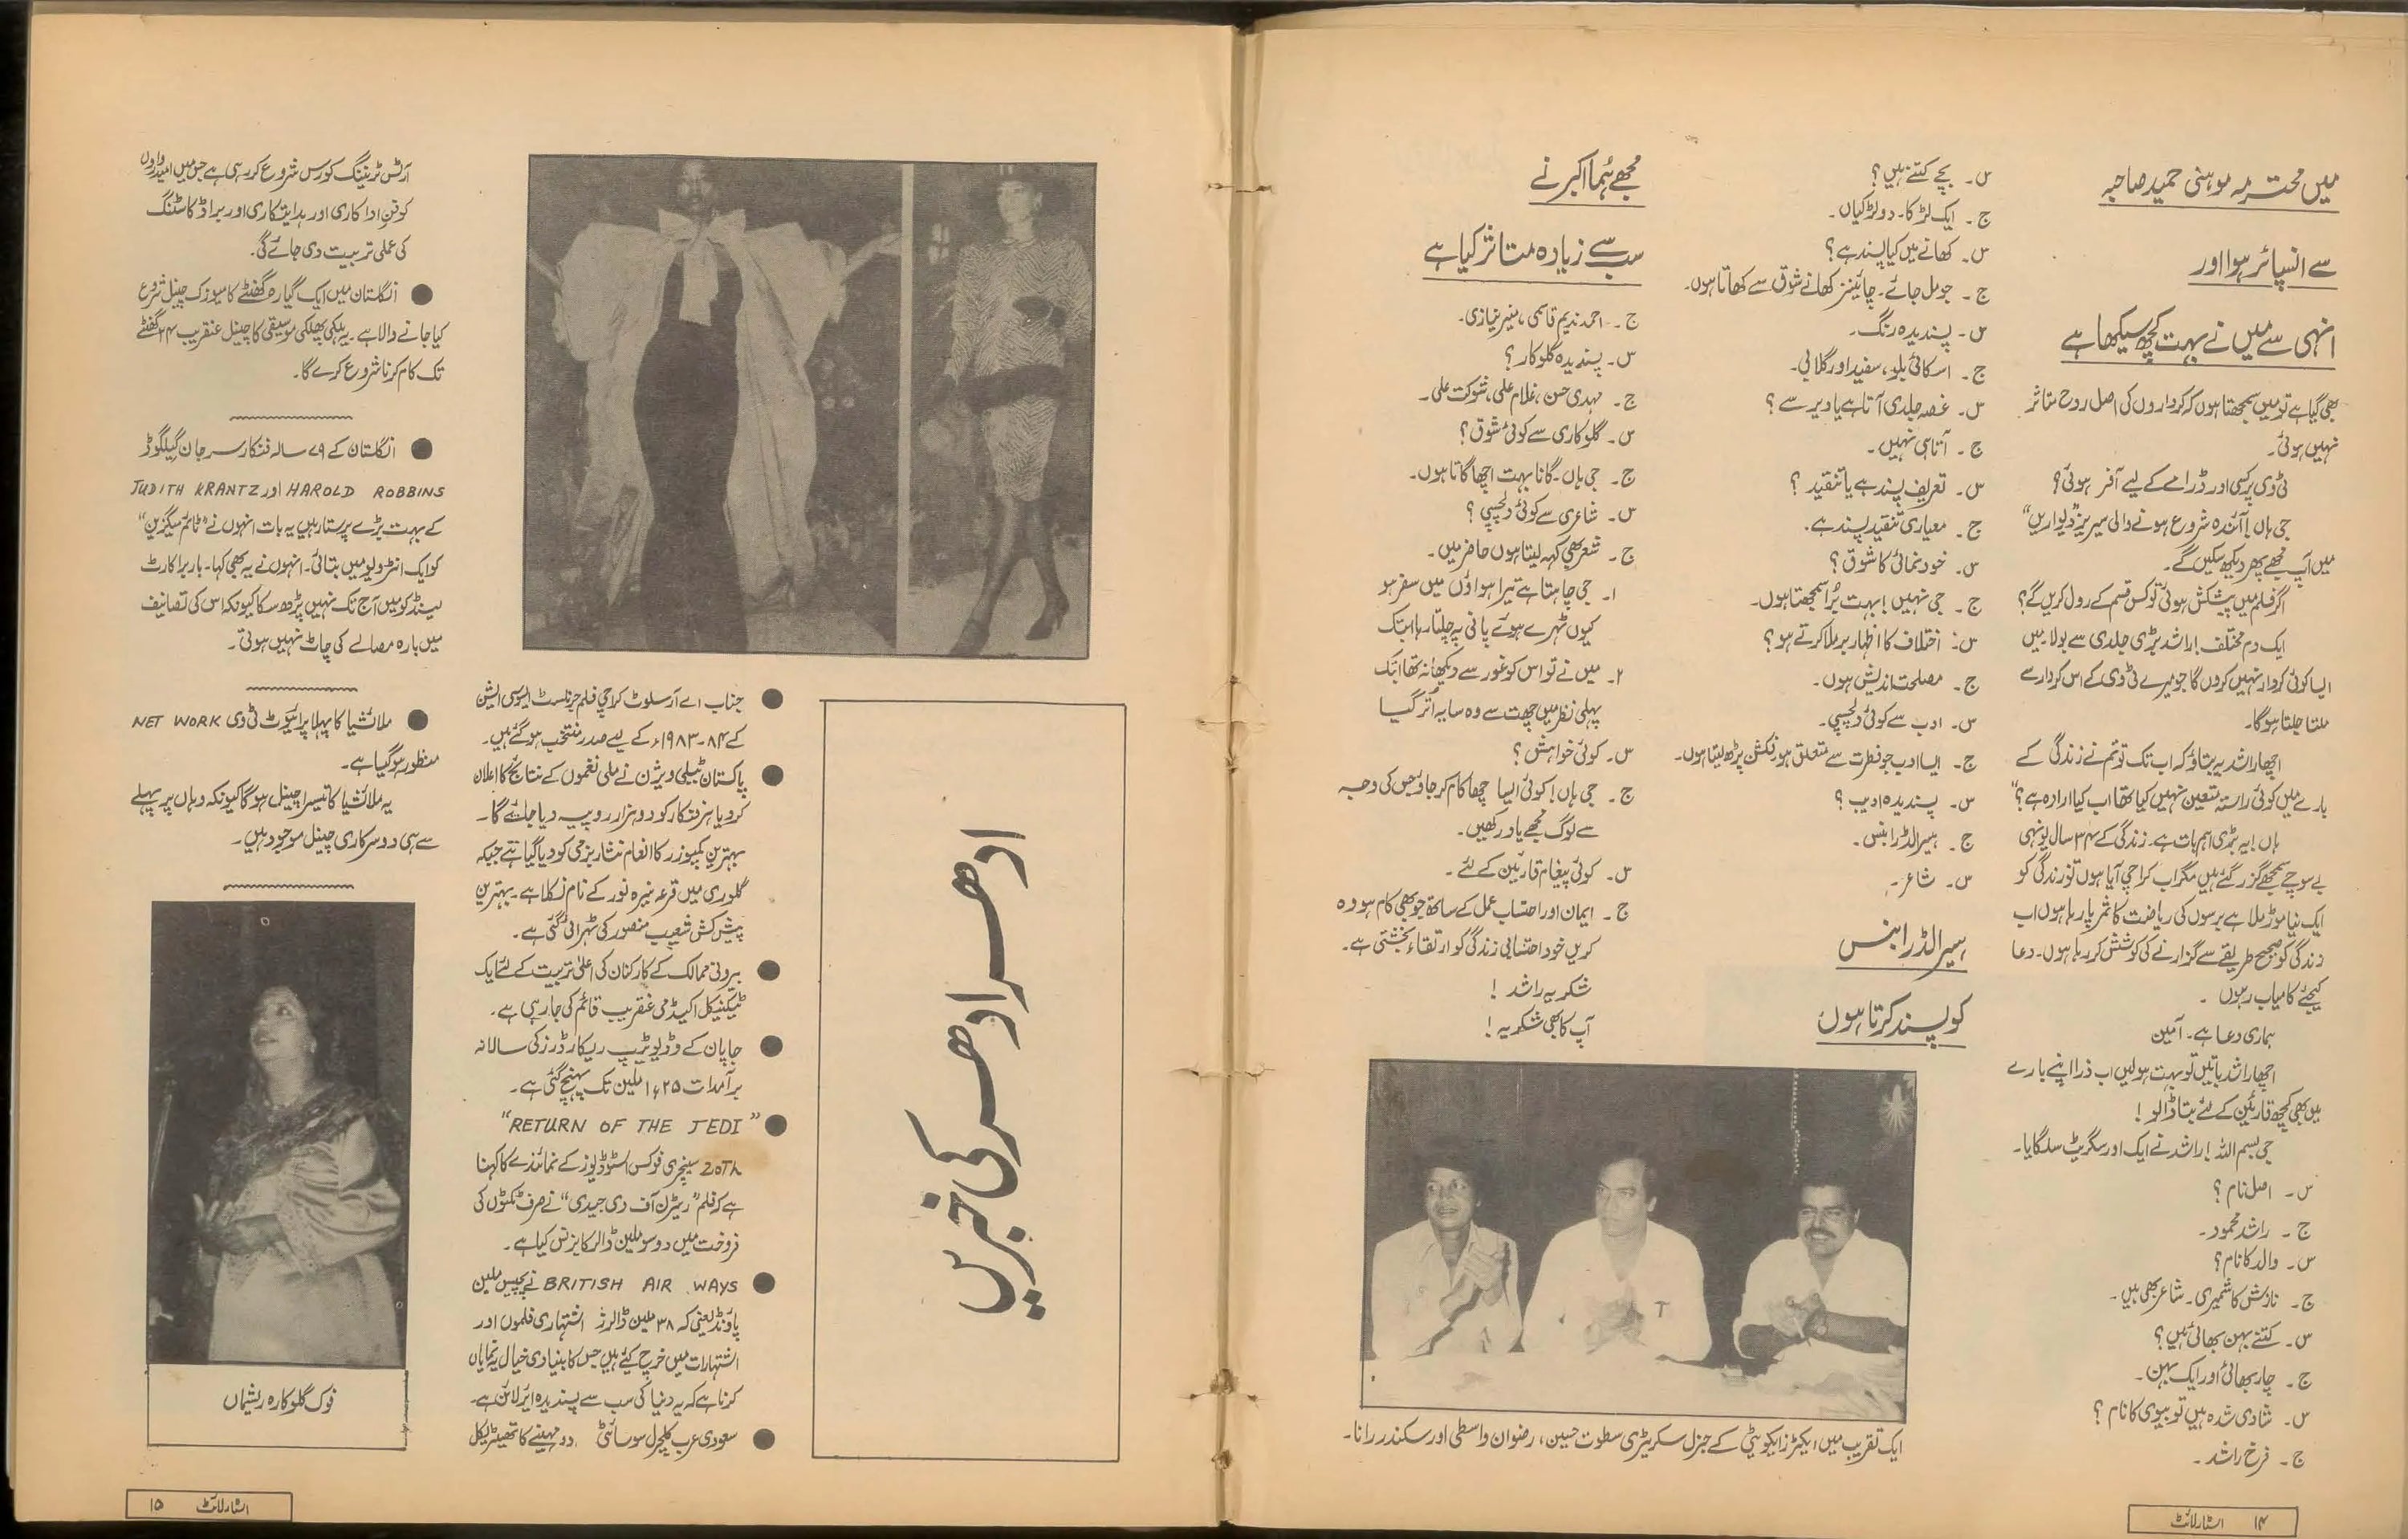 میں محترمہ موہنی حمید صاحبہ
سے انسپائر ہوا اور
انہی سے میں نے بہت کچھ سیکھا ہے
بھی گیا ہے تو میں سمجھتا ہوں کہ کرداروں کی اصل روح متاثر
نہیں ہوئی۔
ٹی وی پر کسی اور ڈرامے کے لیے آفر ہوئی؟
جی ہاں! آئندہ شروع ہونے والی سیریز ”دیواریں“
میں آپ مجھے پھر دیکھ سکیں گے۔
اگر فلم میں پیشکش ہوئی تو کس قسم کے رول کریں گے؟
ایک دم مختلف! راشد بڑی جلدی سے بولا۔ میں
ایسا کوئی کردار نہیں کروں گا جو میرے ٹی وی کے اس کردار سے
ملتا جلتا ہوگا۔
اچھا راشد یہ بتاؤ کہ اب تک تو تم نے زندگی کے
بارے میں کوئی راستہ متعین نہیں کیا تھا اب کیا ارادہ ہے؟
ہاں! یہ بڑی اہم بات ہے۔ زندگی کے ۳۴ سال یونہی
بے سوچے سمجھے گزر گئے ہیں مگر اب کراچی آیا ہوں تو زندگی کو
ایک نیا موڑ ملا ہے برسوں کی ریاضت کا ثمر پا رہا ہوں اب
زندگی کو صحیح طریقے سے گزارنے کی کوشش کر رہا ہوں۔ دعا
کیجئے کامیاب رہوں۔
ہماری دعا ہے۔ آمین
اچھا راشد باتیں تو بہت ہولیں اب ذرا اپنے بارے
میں بھی کچھ قارئین کے لئے بتا ڈالو!
جی بسم اللہ! راشد نے ایک اور سگریٹ سلگایا۔
س۔ اصل نام؟
ج۔ راشد محمود۔
س۔ والد کا نام؟
ج۔ نازش کاشمیری۔ شاعر بھی ہیں۔
س۔ کتنے بہن بھائی ہیں؟
ج۔ چار بھائی اور ایک بہن۔
س۔ شادی شدہ ہیں تو بیوی کا نام؟
ج۔ فرخ راشد۔
س۔ بچے کتنے ہیں؟
ج۔ ایک لڑکا۔ دو لڑکیاں۔
س۔ کھانے میں کیا پسند ہے؟
ج۔ جو مل جائے۔ چائنیز کھانے شوق سے کھاتا ہوں۔
س۔ پسندیدہ رنگ۔
ج۔ اسکائی بلو، سفید اور گلابی۔
س۔ غصہ جلدی آتا ہے یا دیر سے؟
ج۔ آتا ہی نہیں۔
س۔ تعریف پسند ہے یا تنقید؟
ج۔ معیاری تنقید پسند ہے۔
س۔ خود نمائی کا شوق؟
ج۔ جی نہیں! بہت بُرا سمجھتا ہوں۔
س: اختلاف کا اظہار برملا کرتے ہو؟
ج۔ مصلحت اندیش ہوں۔
س۔ ادب سے کوئی دلچسپی۔
ج۔ ایسا ادب جو فطرت سے متعلق ہو فکشن پڑھ لیتا ہوں۔
س۔ پسندیدہ ادیب؟
ج۔ ہیرالڈ رابنس۔
س۔ شاعر۔
ہیرالڈ رابنس
کو پسند کرتا ہوں
مجھے ہُما اکبر نے
سب سے زیادہ متاثر کیا ہے
ج۔ احمد ندیم قاسمی، منیر نیازی۔
س۔ پسندیدہ گلوکار؟
ج۔ مہدی حسن، غلام علی، شوکت علی۔
س۔ گلوکاری سے کوئی شوق؟
ج۔ جی ہاں۔ گانا بہت اچھا گاتا ہوں۔
س۔ شاعری سے کوئی دلچسپی؟
ج۔ شعر بھی کہہ لیتا ہوں حاضر ہیں۔
۱۔ جی چاہتا ہے تیرا ہواؤں میں سفر ہو
کیوں ٹھہرے ہوئے پانی پہ چلتا رہا اب تک
۲۔ میں نے تو اس کو غور سے دیکھا نہ تھا ابتک
پہلی نظر میں چھت سے وہ سایہ اُتر گیا
س۔ کوئی خواہش؟
ج۔ جی ہاں! کوئی ایسا اچھا کام کر جاؤں جس کی وجہ
سے لوگ مجھے یاد رکھیں۔
س۔ کوئی پیغام قارئین کے لئے۔
ج۔ ایمان اور احتساب عمل کے ساتھ جو بھی کام ہو وہ
کریں خود احتسابی زندگی کو ارتقاء بخشتی ہے۔
شکریہ راشد!
آپ کا بھی شکریہ!
ایک تقریب میں ایکٹرز ایکویٹی کے جنرل سکریٹری سطوت حسین، رضوان واسطی اور سکندر رانا۔
۱۴ اسٹار لائٹ
ادھر ادھر کی خبریں
● جناب اے آر سلوٹ کراچی فلم جرنلسٹ ایسوسی ایشن
کے ۸۴۔۱۹۸۳ء کے لیے صدر منتخب ہوگئے ہیں۔
● پاکستان ٹیلی ویژن نے ملی نغموں کے نتائج کا اعلان
کردیا ہر فنکار کو دو ہزار روپیہ دیا جائے گا۔
بہترین کمپوزر کا انعام نثار بزمی کو دیا گیا ہے جبکہ
گلوری میں قرعہ نیرہ نور کے نام نکلا ہے۔ بہترین
پیش کش شعیب منصور کی ٹہرائی گئی ہے۔
● بیرونی ممالک کے کارکنان کی اعلیٰ تربیت کے لئے ایک
ٹیکنیکل اکیڈمی عنقریب قائم کی جارہی ہے۔
● جاپان کے وڈیو ٹیپ ریکارڈرز کی سالانہ
برآمدات ۱٫۲۵ ملین تک پہنچ گئی ہے۔
● "RETURN OF THE JEDI"
20Th سینچری فوکس اسٹوڈیوز کے نمائندے کا کہنا
ہے کہ فلم ”ریٹرن آف دی جیدی“ نے صرف ٹکٹوں کی
فروخت میں دو سو ملین ڈالر کا بزنس کیا ہے۔
● BRITISH AIR WAYS نے پچیس ملین
پاؤنڈ یعنی کہ ۳۸ ملین ڈالرز اشتہاری فلموں اور
اشتہارات میں خرچ کئے ہیں جس کا بنیادی خیال یہ نمایاں
کرنا ہے کہ یہ دنیا کی سب سے پسندیدہ ایرلائن ہے۔
● سعودی عرب کلچرل سوسائٹی دو مہینے کا تھیٹریکل
آرٹس ٹریننگ کورس شروع کررہی ہے جس میں امیدواروں
کو فن اداکاری اور ہدایتکاری اور براڈ کاسٹنگ
کی عملی تربیت دی جائے گی۔
● انگلستان میں ایک گیارہ گھنٹے کا میوزک چینل شروع
کیا جانے والا ہے۔ یہ ہلکی پھلکی موسیقی کا چینل عنقریب ۲۴ گھنٹے
تک کام کرنا شروع کرے گا۔
● انگلستان کے ۷۹ سالہ فنکار سر جان گیلگوڈ
HAROLD ROBBINS اور JUDITH KRANTZ
کے بہت بڑے پرستار ہیں یہ بات انہوں نے ”ٹائم میگزین“
کو ایک انٹرویو میں بتائی۔ انہوں نے یہ بھی کہا۔ باربرا کارٹ
لینڈ کو میں آج تک نہیں پڑھ سکا کیونکہ اس کی تصانیف
میں بارہ مصالے کی چاٹ نہیں ہوتی۔
● ملائشیا کا پہلا پرائیوٹ ٹی وی NET WORK
منظور ہوگیا ہے۔
یہ ملائشیا کا تیسرا چینل ہوگا کیونکہ وہاں پر پہلے
سے ہی دو سرکاری چینل موجود ہیں۔
فوک گلوکارہ ریشماں
اسٹار لائٹ ۱۵